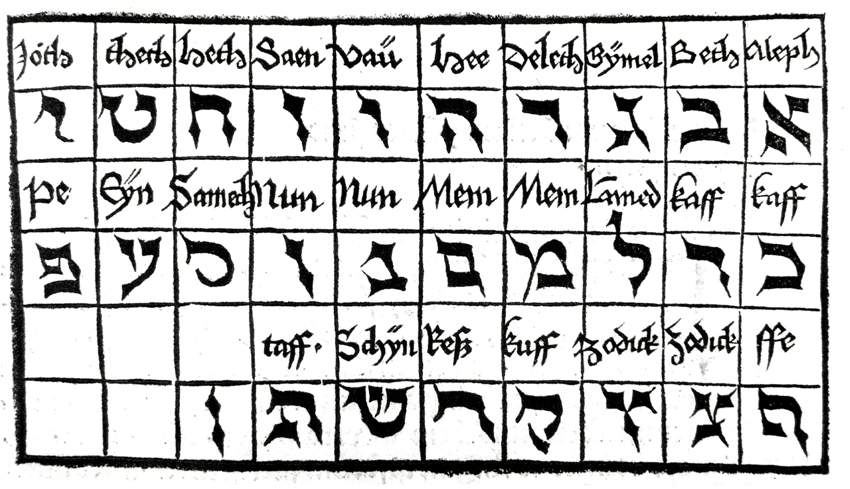 Jöth theth heth Saen Vaü hee Deleth Gÿmel Beth Aleph
א ב ג ד ה ו ז ח ט י
pe Eÿn Samech Nun Nun Mem Mem Lamed kaff kaff
כ ך ל מ ם נ ן ס ע פ
taff. Schÿn Reß kuff Zodick Zodick ffe
ף צ ץ ק ר ש ת